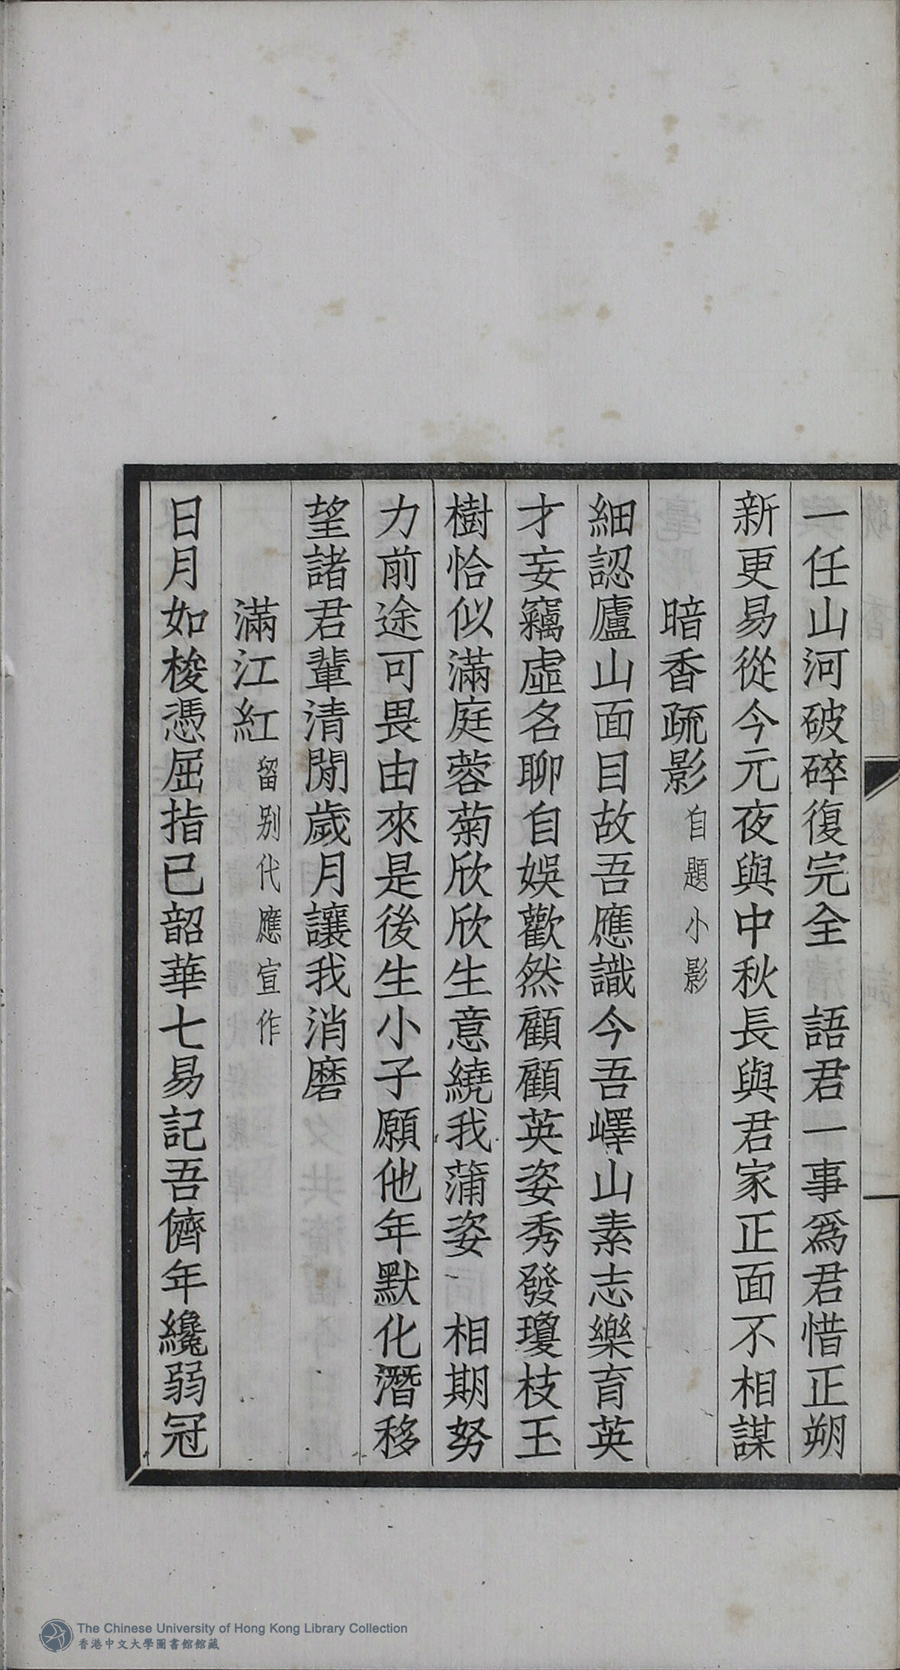 一任山河破碎復完全　語君一事爲君惜正朔
新更易從今元夜與中秋長與君家正面不相謀
暗香疏影自題小影
細認廬山面目故吾應識今吾嶧山素志樂育英
才妄竊虛名聊自娛歡然顧顧英姿秀發瓊枝玉
樹恰似滿庭蓉菊欣欣生意繞我蒲姿　相期努
力前途可畏由來是後生小子願他年默化潛移
望諸君輩清閒歲月讓我消磨
滿江紅留别代應宣作
日月如梭憑屈指已韶華七易記吾儕年纔弱冠
The Chinese University of Hong Kong Library Collection
香港中文大學圖書館館藏